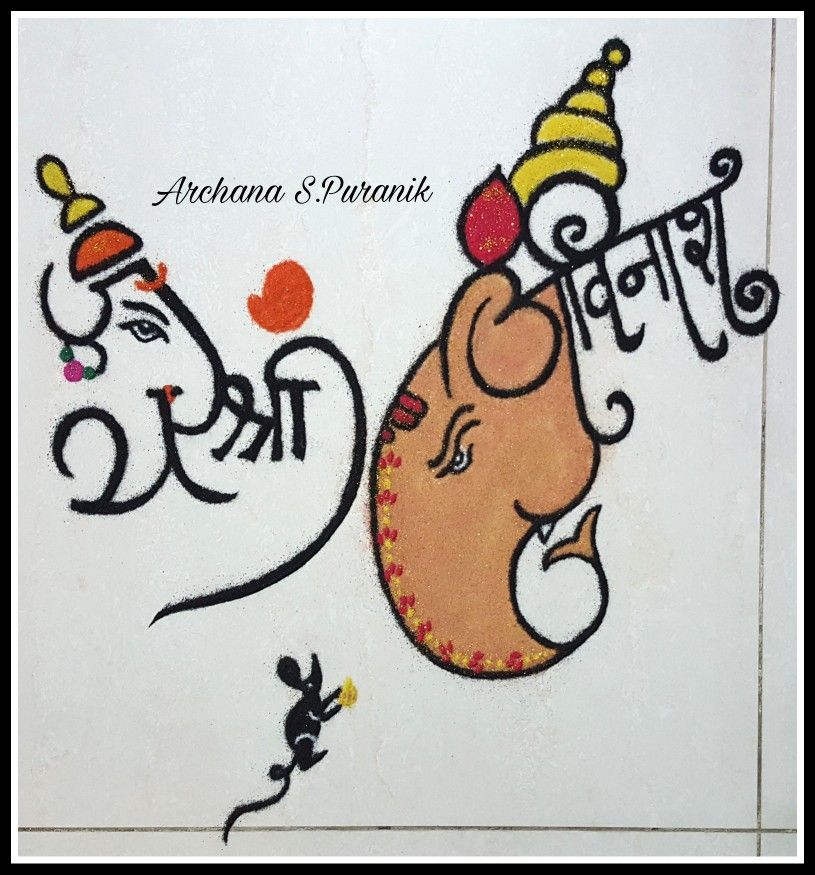 Archana S.Puranik
श्री
विनाश